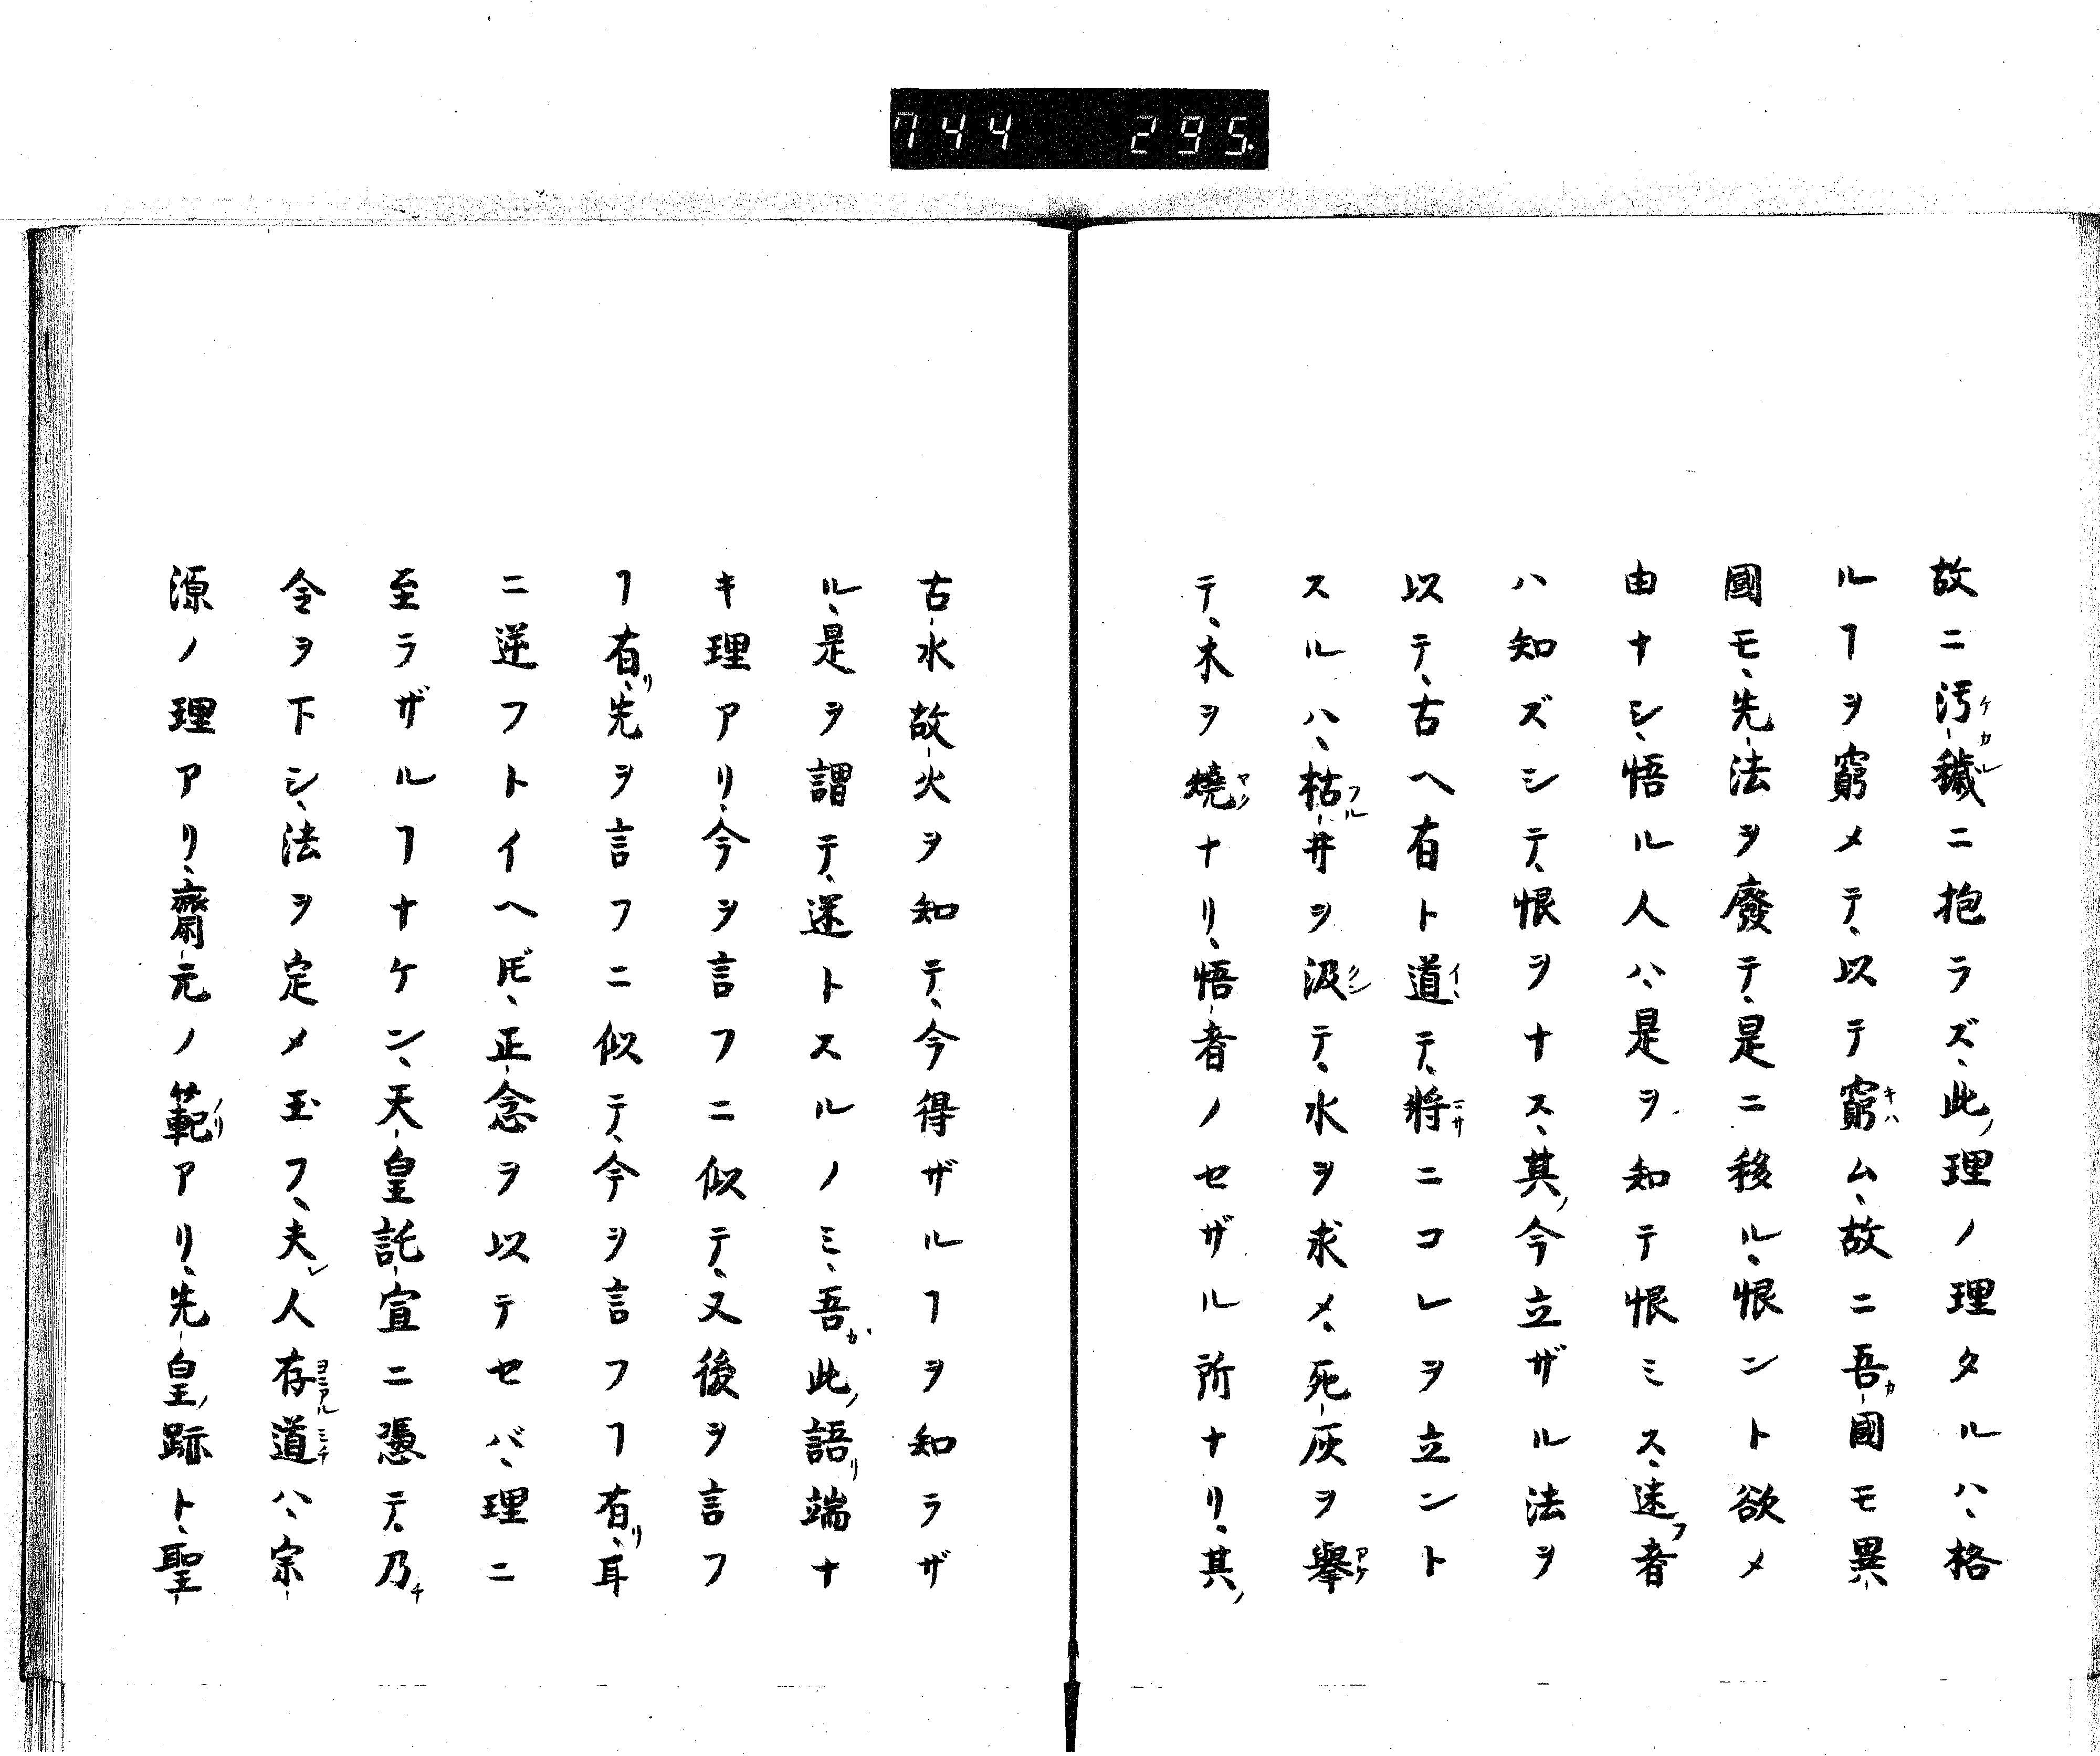 744 295.
故ニ汚穢ニ抱ラズ、此ノ理ノ理タルハ、格
ルヿヲ窮メテ、以テ窮ム、故ニ吾カ國モ異
國モ、先法ヲ廢テ、是ニ移ル、恨ント欲メ
由ナシ、悟ル人ハ、是ヲ知テ恨ミス、迷フ者
ハ知ズシテ、恨ヲナス、其ノ今立ザル法ヲ
以テ、古ヘ有ト道テ、将ニコレヲ立ント
スルハ、枯井ヲ汲テ、水ヲ求メ、死灰ヲ擧
テ、木ヲ燒ナリ、悟者ノセザル所ナリ、其ノ
古水故火ヲ知テ、今得ザルヿヲ知ラザ
ル、是ヲ謂テ、迷トスルノミ、吾か此ノ語リ端ナ
キ理アリ、今ヲ言フニ似テ、又後ヲ言フ
ヿ有リ、先ヲ言フニ似テ、今ヲ言フヿ有リ、耳
ニ逆フトイヘ𪜈、正念ヲ以テセバ、理ニ
至ラザルヿナケン、天皇託宣ニ憑テ、乃チ
令ヲ下シ、法ヲ定メ玉フ、夫レ人存道ハ、宗
源ノ理アリ、齋元ノ範アリ、先皇ノ跡ト、聖